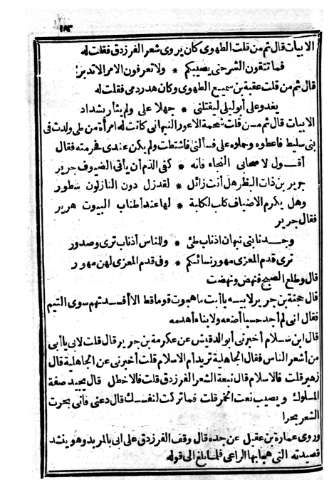 ١٨٣
الابيات قال ثم من قلت الطهوى كان يروى شعر الفرزدق فقلت له
فما تتقون الشر حتى يصيبكم * ولا تعرفون الامر الا تدبرا
قال ثم من قلت عقبة بن سميع الطهوى وكان هدر دمى فقلت له
يغدو على أبو ليلى ليقتلنى * جهلا على ولم يثأر بشداد
الابيات قال ثم من قلت سحمة الاعور النبهانى كانت له امرأة من طى ولدت فى
بنى سليط فاعطوه وحملوه على فسألنى فاشتطت ولم يكن عندى فحرمته فقال
أقول لاصحابى النجاء فانه * كفى الذم أن يأتى الضيوف جرير
جرير بن ذات البظر هل أنت زائل * لقدرك دون النازلين ستور
وهل يكرم الاضياف كلب لكلبة * لها عند أطناب البيوت هرير
فقال جرير
وجدنا بنى نبهان أذناب طئ * وللناس أذناب ترى وصدور
ترى قدم المعزى مهور نسائكم * وفى قدم المعزى لهن مهور
قال وطلع الصبح فنهض ونهضت
قال جحنة بن جرير لابيه يا أبت ما هجوت قوما قط الا أفسدتهم سوى التيم
فقال انى لم أجد حسبا أضعه ولا بناء أهدمه
قال ابن سلام أخبرنى أبو الدقيش عن عكرمة بن جرير قال قلت لابى يا أبى
من أشعر الناس فقال الجاهلية تريد أم الاسلام قلت أخبرنى عن الجاهلية قال
زهير قلت فالاسلام قال نبعة الشعر الفرزدق قلت فالاخطل قال يجيد صفة
الملوك و يصيب نعت الخمر قلت فما تركت لنفسك قال دعنى فانى بحرت
الشعر بحرا
وروى عمارة بن عقيل عن جده قال وقف الفرزدق على ابى بالمربد وهو ينشد
قصيدته التى هجا بها الراعى فلما بلغ الى قوله